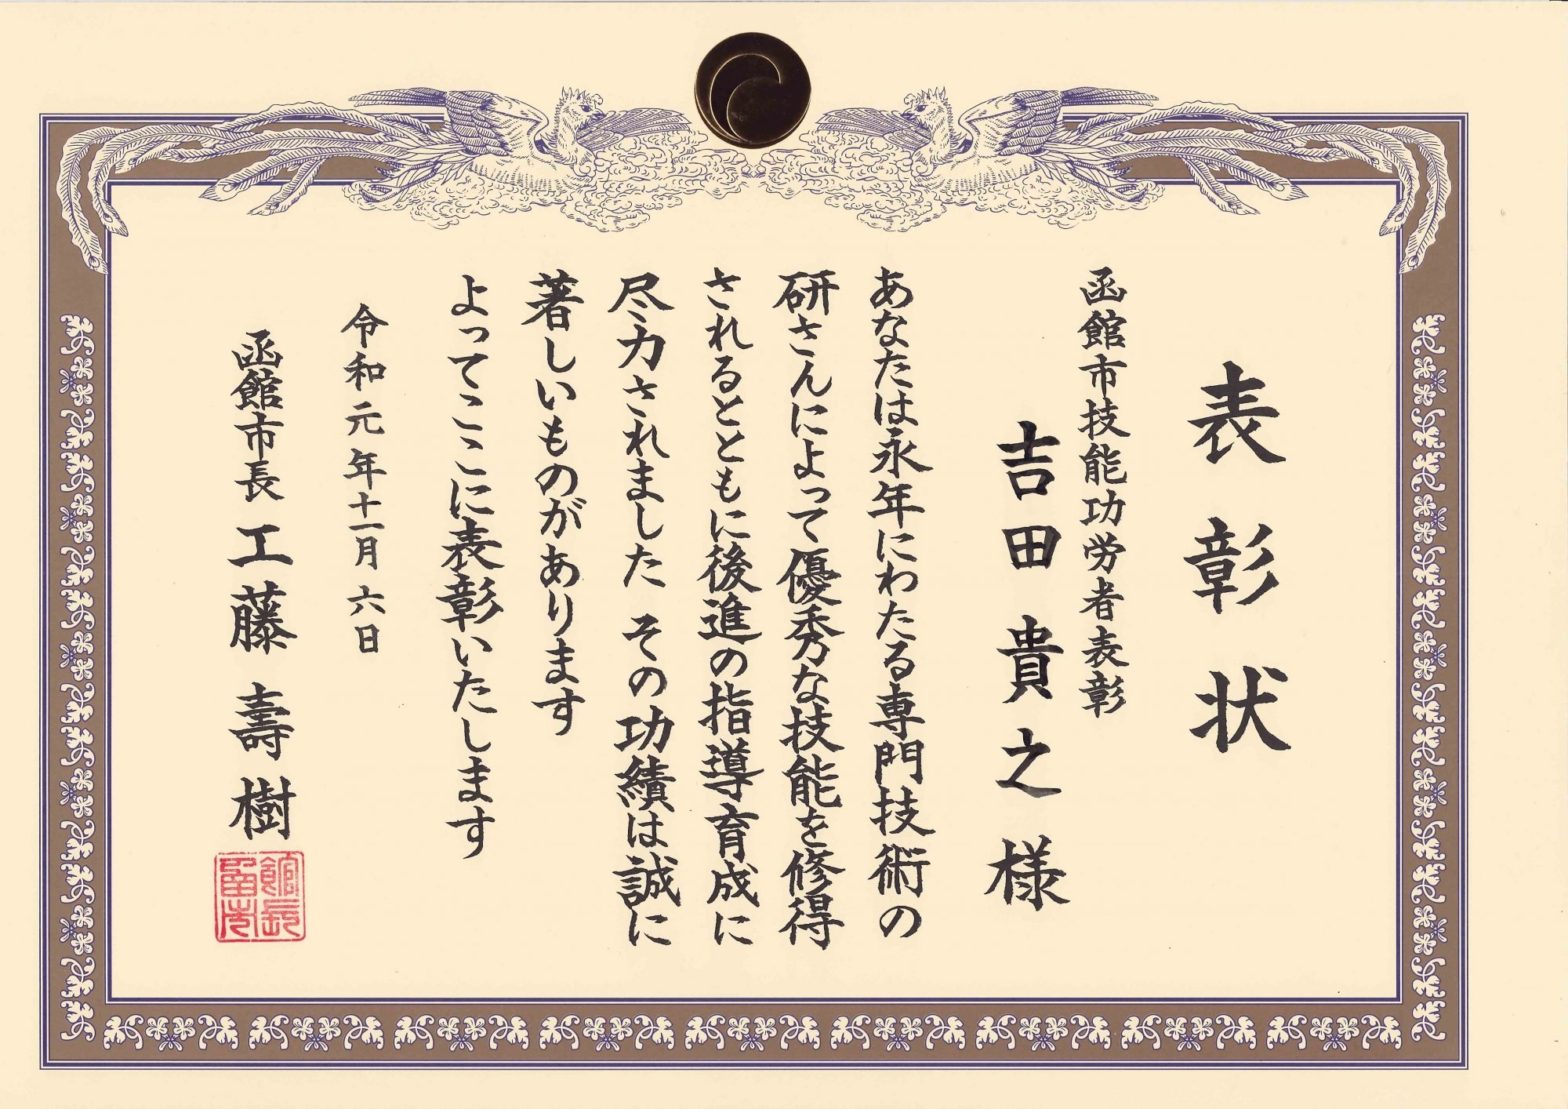 表彰状
函館市技能功労者表彰
吉田貴之様
あなたは永年にわたる専門技術の
研さんによって優秀な技能を修得
されるとともに後進の指導育成に
尽力されました その功績は誠に
著しいものがあります
よってここに表彰いたします
令和元年十一月六日
函館市長 工藤壽樹
函館市長